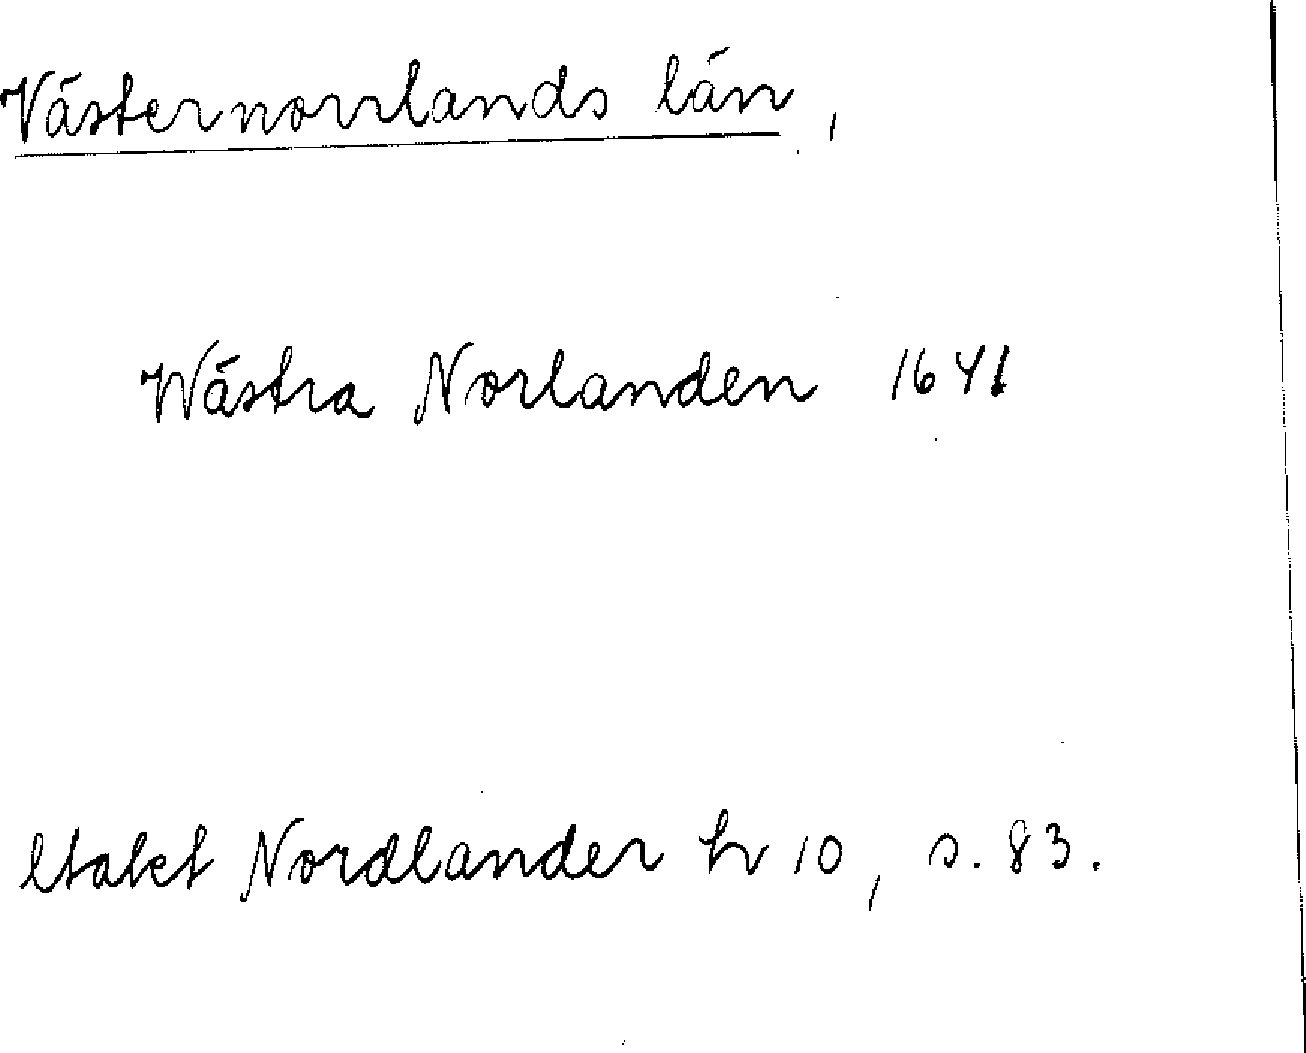 Västernorrlands län,
Wästra Norlanden 1641
Nordlander hr 10, s. 83.